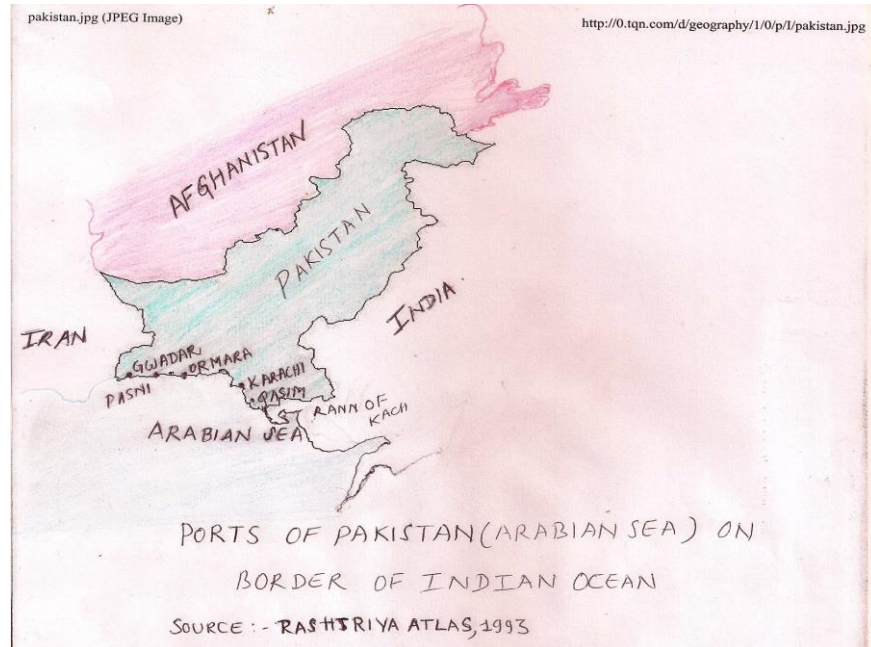 pakistan.jpg (JPEG Image)
http://0.tqn.com/d/geography/1/0/p/I/pakistan.jpg
AFGHANISTAN
PAKISTAN
INDIA
IRAN
GWADAR
ORMARA
PASNI
KARACHI
QASIM
RANN OF
KACH
ARABIAN SEA
PORTS OF PAKISTAN (ARABIAN SEA) ON
BORDER OF INDIAN OCEAN
SOURCE :- RASHTRIYA ATLAS, 1993